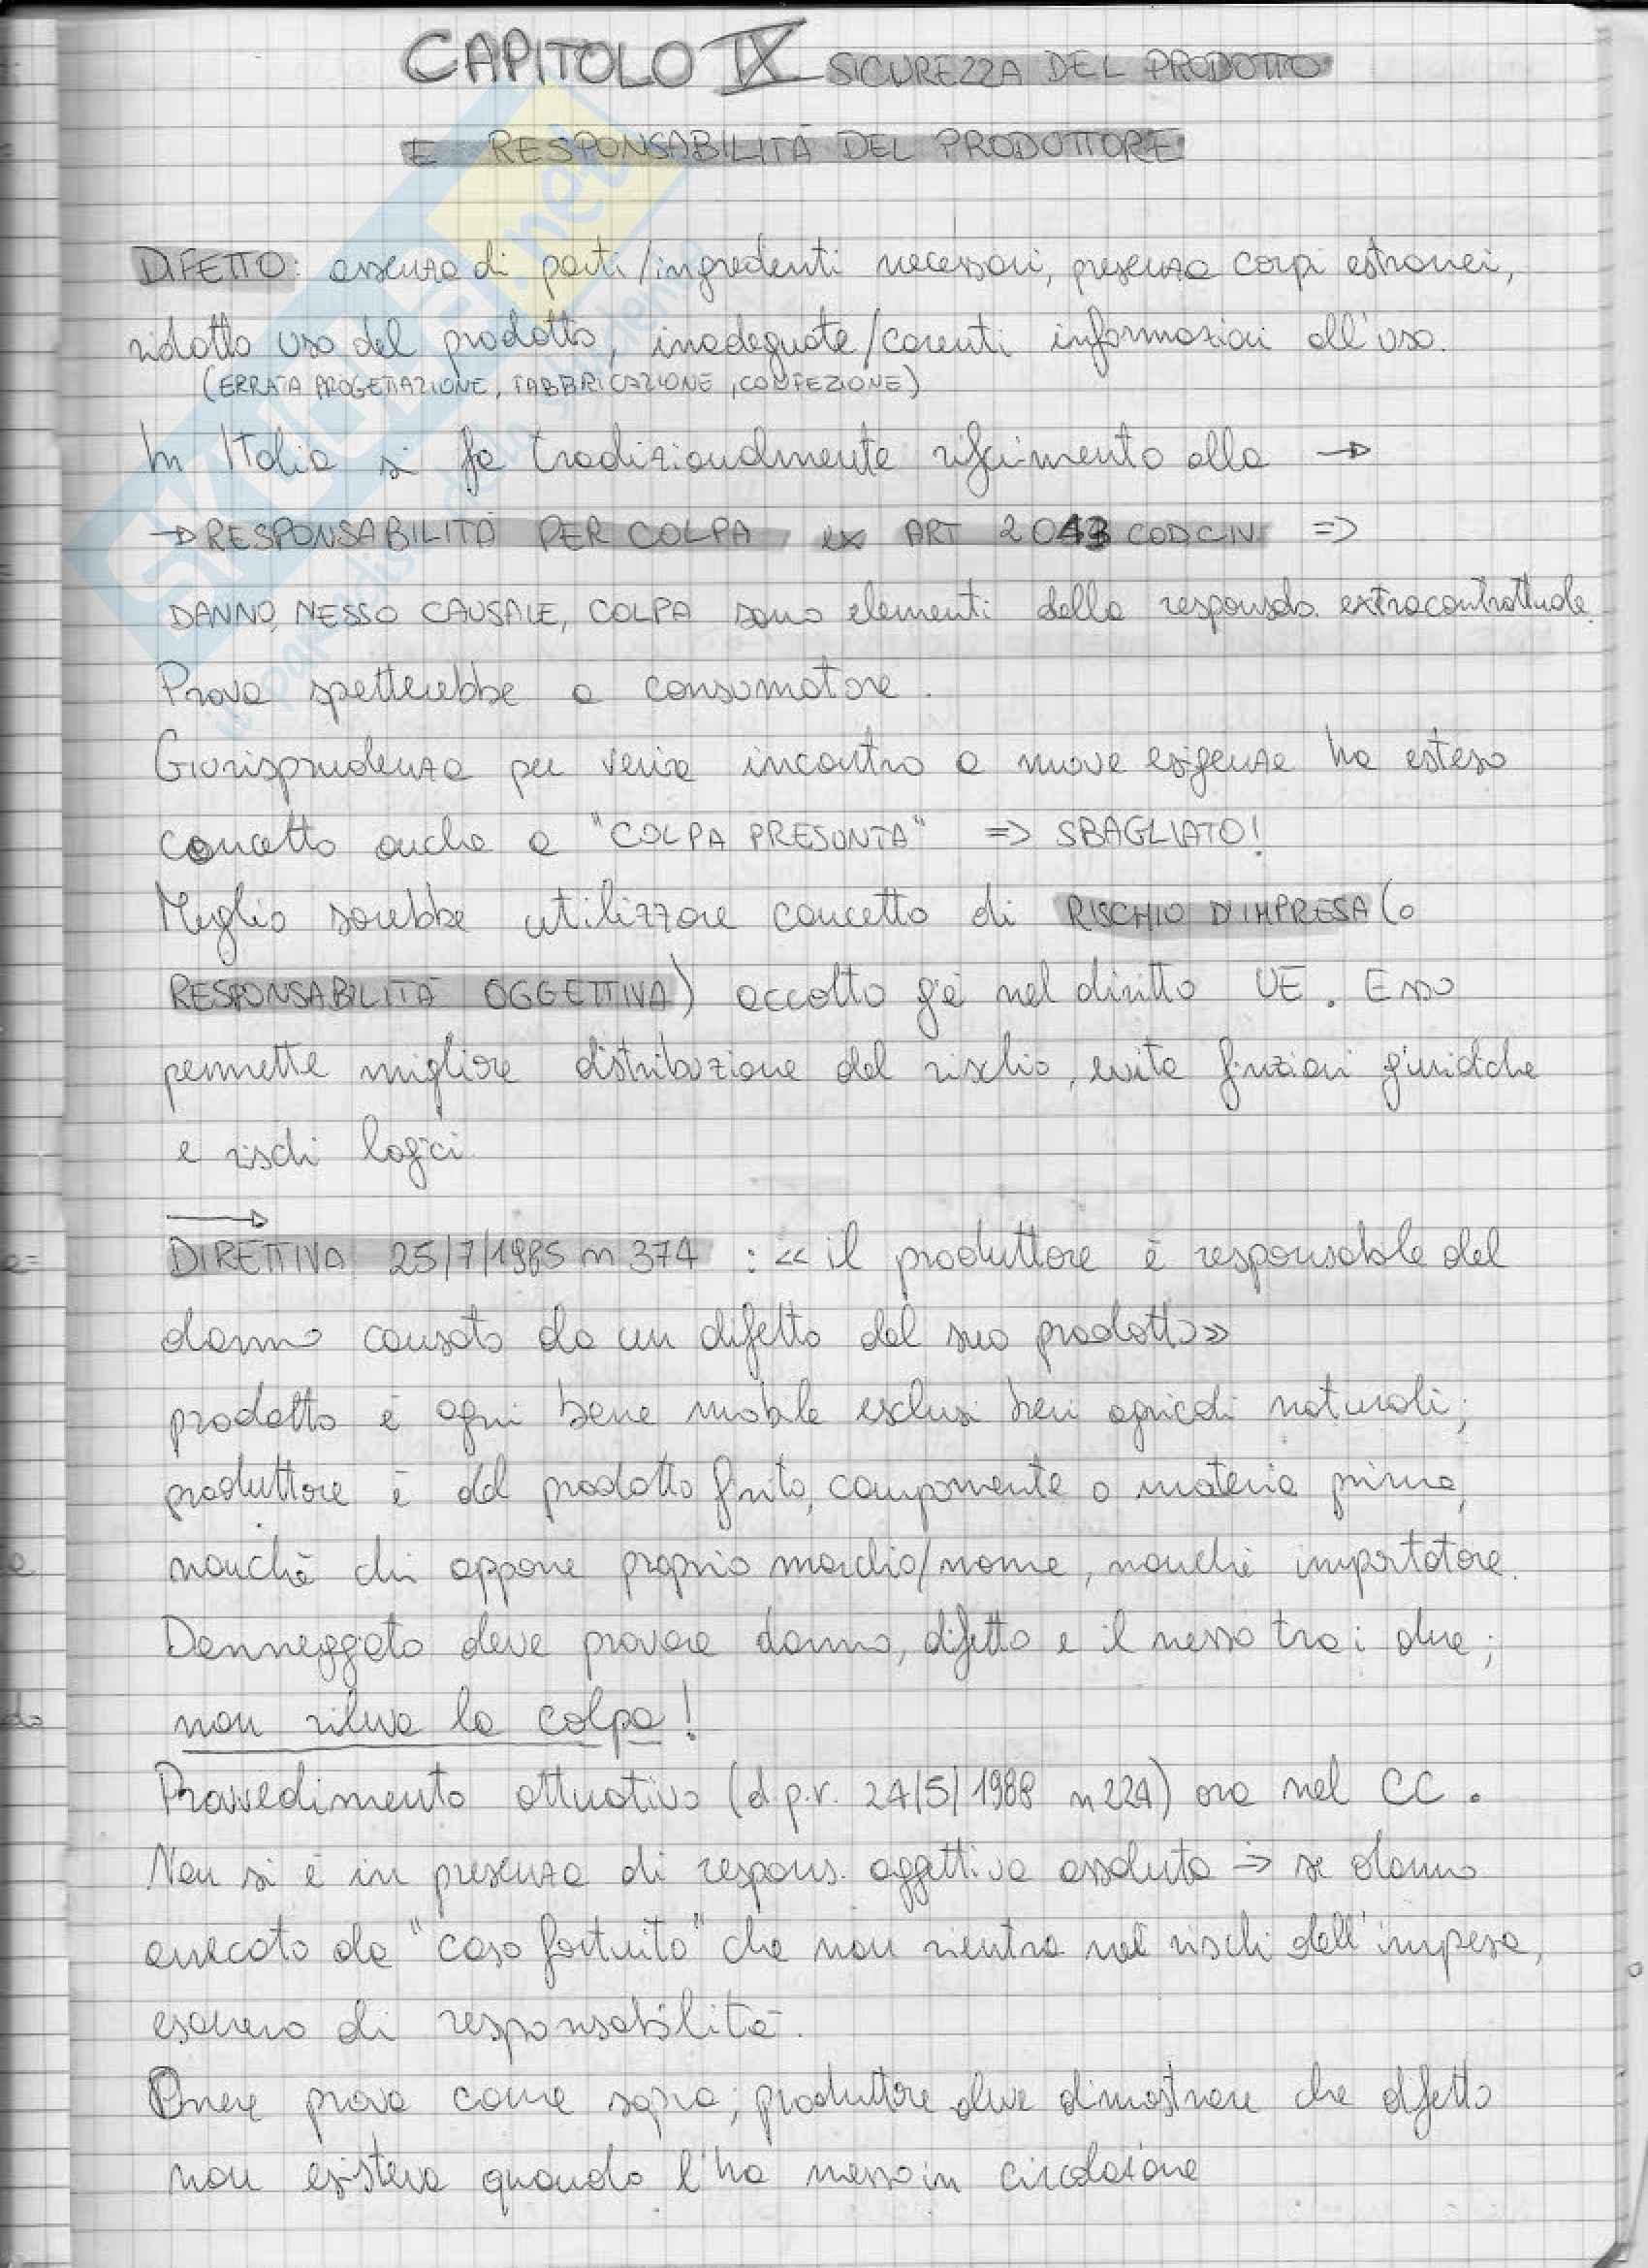 CAPITOLO IX SICUREZZA DEL PRODOTTO
E RESPONSABILITÀ DEL PRODUTTORE
DIFETTO: assenza di parti/ingredienti necessari, presenza corpi estranei,
ridotto uso del prodotto, inadeguate/carenti informazioni all'uso.
(ERRATA PROGETTAZIONE, FABBRICAZIONE, CONFEZIONE)
In Italia si fa tradizionalmente riferimento alla →
→ RESPONSABILITÀ PER COLPA ex ART 2043 COD CIV =>
DANNO, NESSO CAUSALE, COLPA sono elementi della responsab. extracontrattuale.
Prova spetterebbe a consumatore.
Giurisprudenza per venire incontro a nuove esigenze ha esteso
concetto anche a "COLPA PRESUNTA" => SBAGLIATO!
Meglio sarebbe utilizzare concetto di RISCHIO D'IMPRESA (o
RESPONSABILITÀ OGGETTIVA) accolto già nel diritto UE. Esso
permette migliore distribuzione del rischio, evita finzioni giuridiche
e rischi logici.
→
DIRETTIVA 25/7/1985 n 374 : «il produttore è responsabile del
danno causato da un difetto del suo prodotto»
prodotto è ogni bene mobile esclusi beni agricoli naturali;
produttore è del prodotto finito, componente o materia prima,
nonchè chi appone proprio marchio/nome, nonchè importatore.
Danneggiato deve provare danno, difetto e il nesso tra i due;
non rileva la colpa!
Provvedimento attuativo (d.p.r. 24/5/1988 n 224) ora nel CC.
Non si è in presenza di respons. oggettiva assoluta => se danno
arrecato da "caso fortuito" che non rientra nei rischi dell'impresa,
esonero di responsabilità.
Onere prova come sopra; produttore deve dimostrare che difetto
non esisteva quando l'ha messo in circolazione